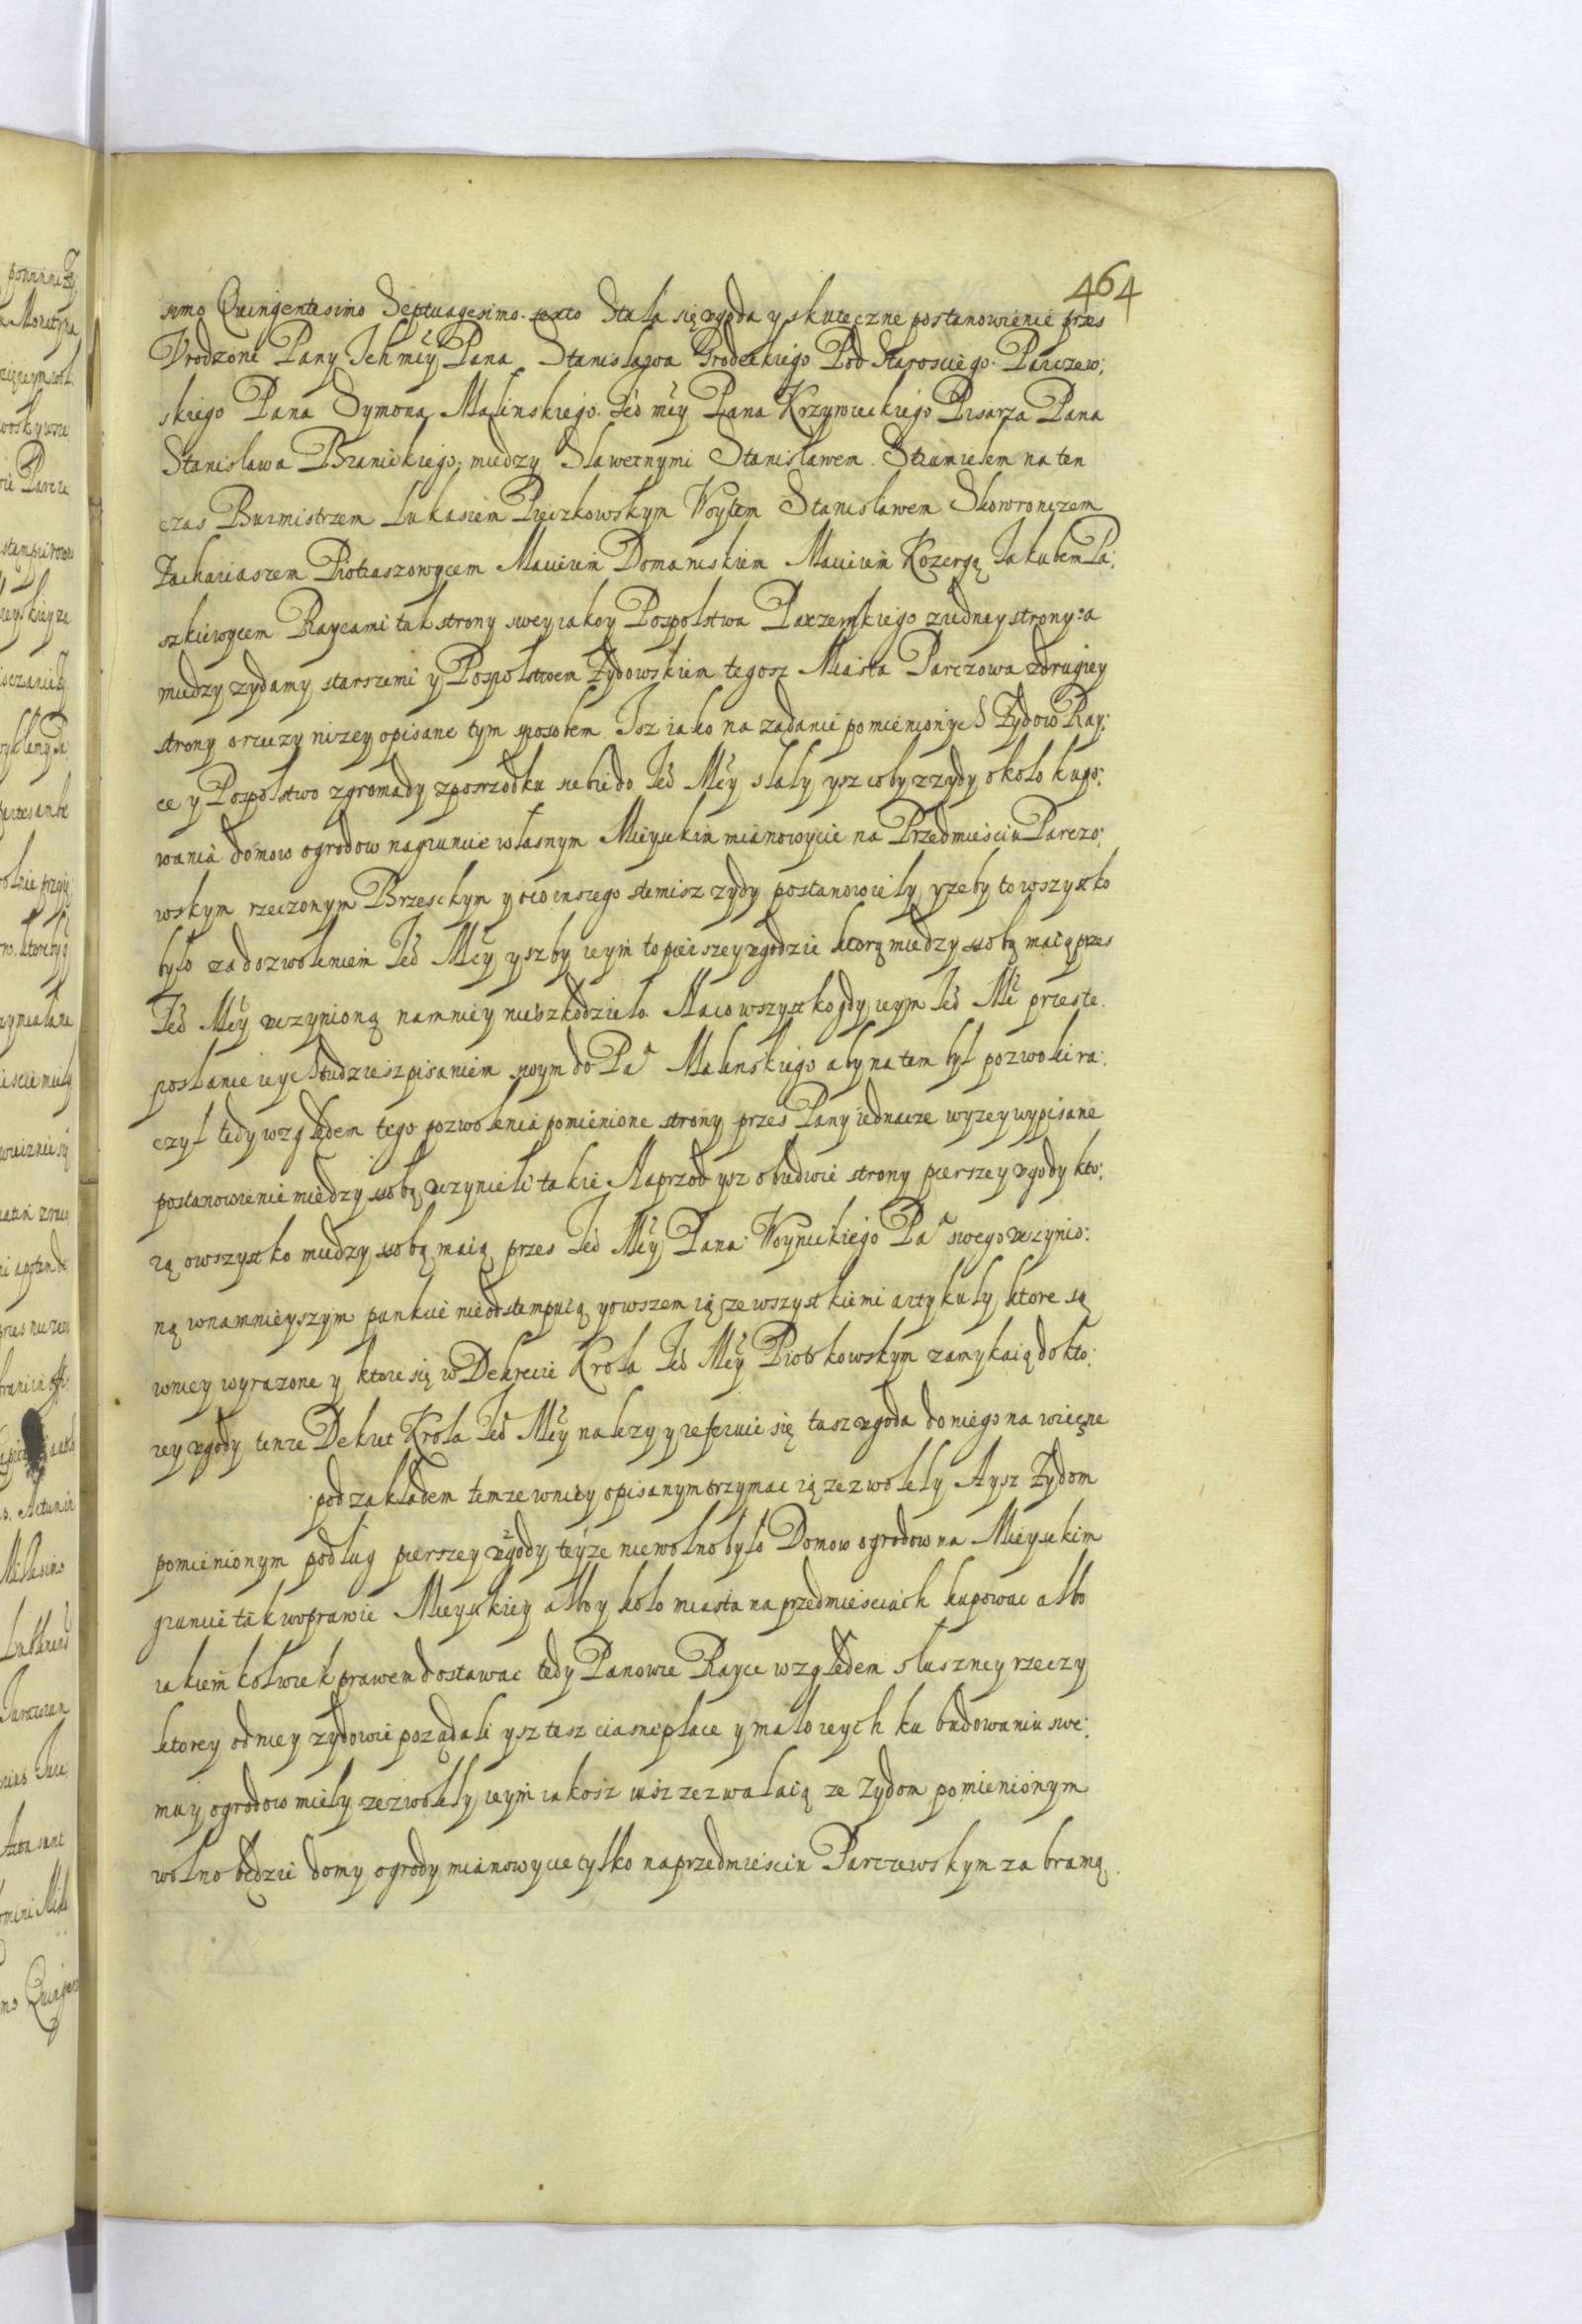 464
simo Quingentesimo Septuagesimo sexto Stala się zgoda y skuteczne postanowienie przes
Vrodzone Pany Jch mcy Pana Stanislawa Grodeckiego Pod Starosciego Parczew:
skiego Pana Symona Malinskiego Jeo mcy Pana Krzywieckiego Pisarza Pana
Stanislawa Branickiego, miedzy Slawetnymi Stanislawem Strumielem na ten
czas Burmistrzem Lukasiem Pieczkowskym Woytem Stanislawem Skowronczem
Zachariaszem Piotraszowycem Macieiem Domanskiem Macieiem Kozergą Jakubem Pa:
szkiewycem Raycami tak strony swey iako y Pospolstwa Parzewskiego z iedney strony: a
miedzy zydamy starszemi y Pospolstwem Zydowskiem tegosz Miasta Parczowa z drugiey
strony o rzeczy nizey opisane tym sposobem Jsz iako na zadanie pomienionych Zydow Ray:
ce y Pospolstwo z gromady z posrzodku siebie do Jeo Mcy slaly ysz coby z zydy okolo kupo:
wania domow ogrodow na gruncie wlasnym Mieyskim mianowycie na Przedmiesciu Parczo:
wskym rzeczonym Brzesckym y o co inszego stemisz zydy postanowiely, yzeby to wszystko
bylo za dozwoleniem Jeo Mcy yszby ieym to pierszey zgodzie ktorą miedzy sobą maią przes
Jeo Mcy uczynioną namniey nieszkodzielo. Na co wszystko gdy ieym Jeo Mc przes te
poslance iych tudziesz pisaniem swym do Pa Malenskiego aby na tem byl pozwolic ra:
czyl tedy względem tego pozwolenia pomienione strony przes Pany iednacze wyzey wypisane
postanowienie miedzy sobą uczynieli takie Naprzod ysz obiedwie strony pierszey zgody kto:
rą owszystko miedzy sobą maią przes Jeo Mcy Pana Woynickiego Pa swego uczynio:
ną w namnieyszym punkcie nieodstempuią y owszem ią ze wszystkiemi artykuly, ktore są
w niey wyrazone y ktore się w Dekrecie Krola Jeo Mcy Piotrkowskym zamykaią do kto:
rey zgody tenze Dekret Krola Jeo Mcy nalezy y referuie się tasz zgoda do niego na wieczne
pod zakladem temze w niey opisanym trzymac ią zezwolely A ysz Zydom
pomienionym podlug pierszey zgody teyze niewolno bylo Domow ogrodow na Mieyskim
gruncie tak w oprawie Mieyskiey albo y kolo miasta na przedmiesciach kupowac albo
iakiem kolwiek prawem dostawac tedy Panowie Rayce względem sluszney rzeczy
ktorey od niey zydowie poządali ysz tesz ciasne place y malo ieych ku budowaniu swe:
mu y ogrodow miely zezwolely ieym iakosz iusz zezwalaią ze Zydom pomienionym
wolno będzie domy ogrody mianowycie tylko na przedmiesciu Parczewskym za bramą